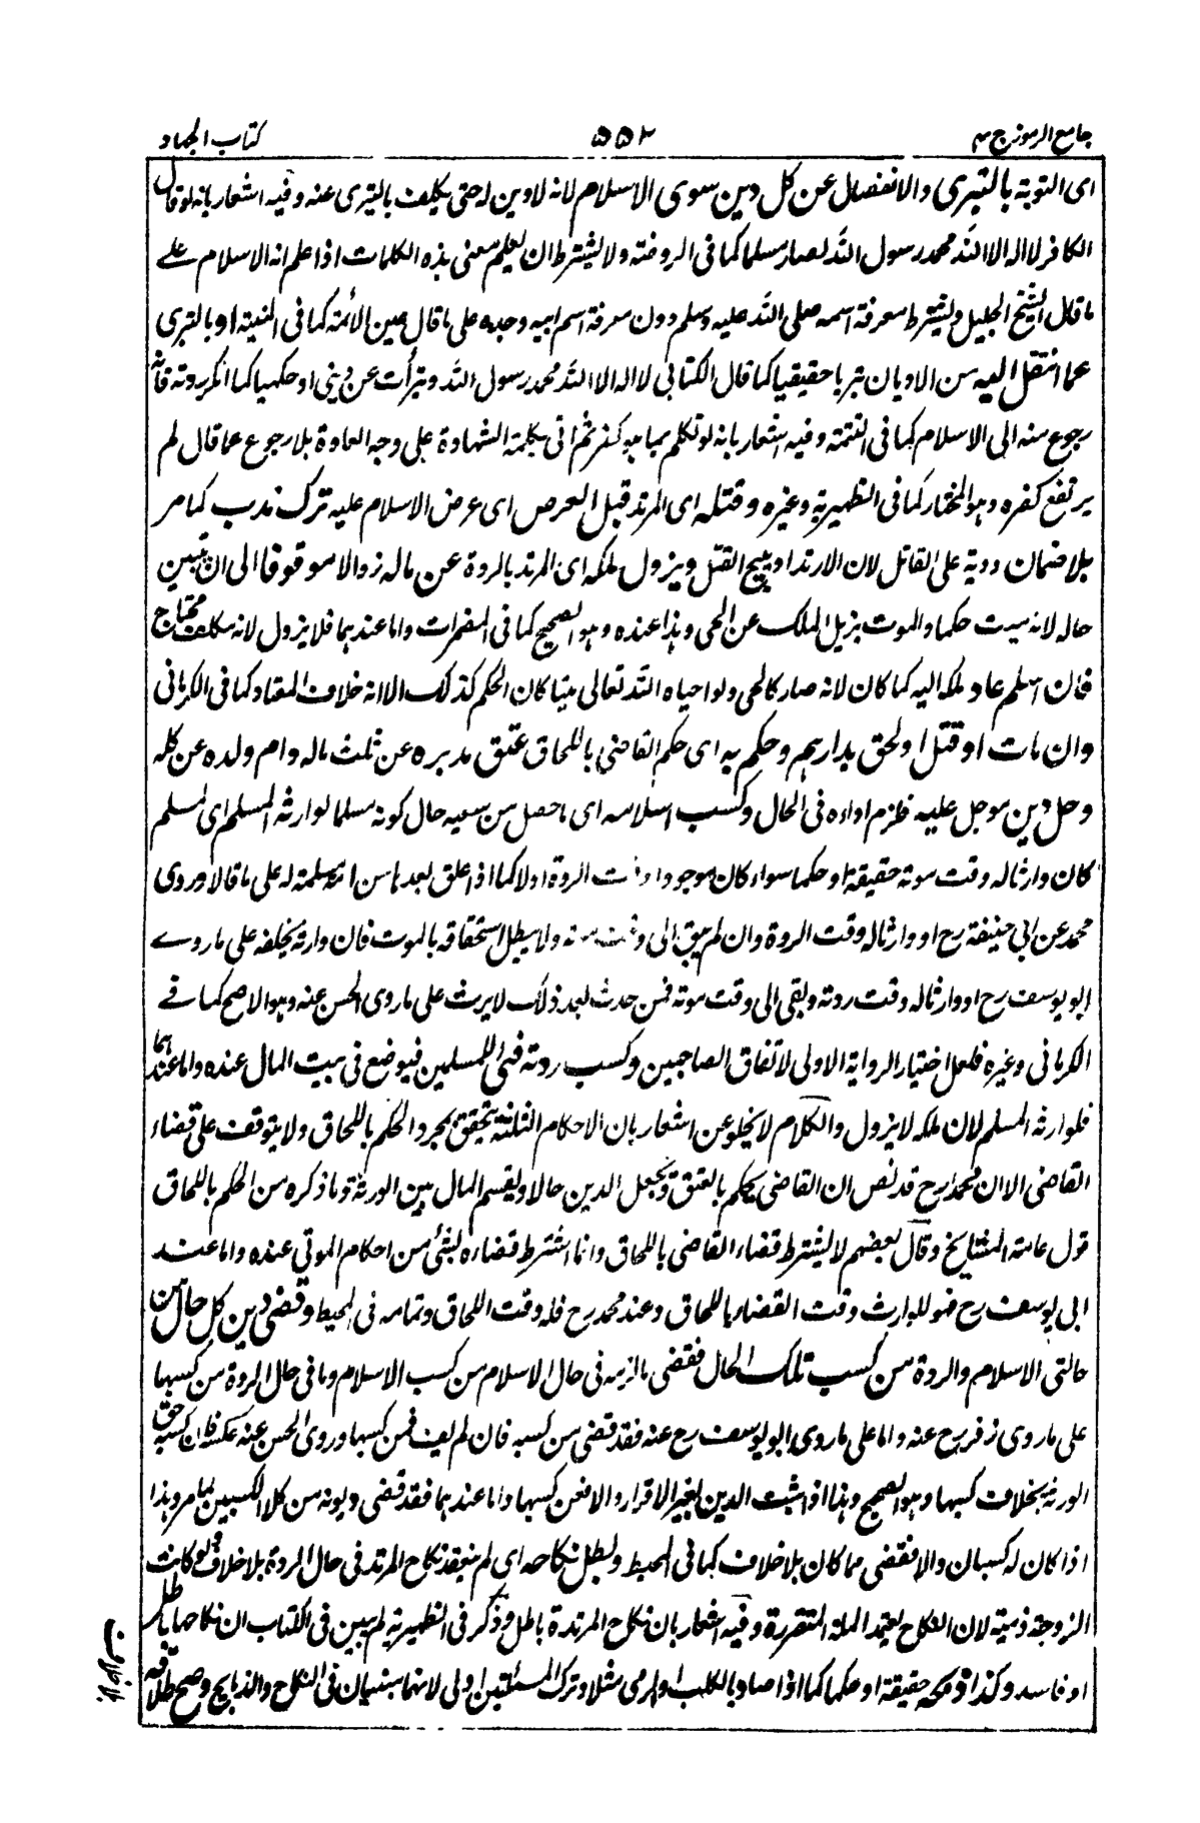 جامع الرموز ج ٣
٥٥٢
كتاب الجهاد
اى التوبة بالتبرى والانفصال عن كل دين سوى الاسلام لانه لا دين له حتى يكلف بالتبرى عنه وفيه اشعار بانه لو قال
الكافر لا اله الا الله محمد رسول الله لصار مسلما كما فى الروضة ولا يشترط ان يعلم معنى هذه الكلمات اذا علم انه الاسلام على
ما قال الشيخ الجليل ويشترط معرفة اسمه صلى الله عليه وسلم دون معرفة اسم ابيه وجده على ما قال عين الأئمة كما فى المنية او بالتبرى
عما انتقل اليه من الاديان تبريا حقيقيا كما قال الكتابى لا اله الا الله محمد رسول الله وتبرأت عن دينى او حكميا كما انكر ردته فانه
رجوع منه الى الاسلام كما فى التتمة وفيه اشعار بانه لو تكلم بما هو كفر ثم اتى بكلمة الشهادة على وجه العادة بلا رجوع عما قال لم
يرتفع كفره وهو المختار كما فى الظهيرية وغيره وقتله اى المرتد قبل العرض اى عرض الاسلام عليه ترك ندب كما مر
بلا ضمان ودية على القاتل لان الارتداد يبيح القتل ويزول ملكه اى المرتد بالردة عن ماله زوالا موقوفا الى ان يتبين
حاله لانه ميت حكما والموت يزيل الملك عن الحى وهذا عنده وهو الصحيح كما فى المضمرات واما عندهما فلا يزول لانه مكلف محتاج
فان اسلم عاد ملكه اليه كما كان لانه صار كالحى ولو احياه الله تعالى ميتا كان الحكم كذلك الا انه خلاف المعتاد كما فى الكرمانى
وان مات او قتل او لحق بدارهم وحكم به اى حكم القاضى باللحاق عتق مدبره عن ثلث ماله وام ولده عن كله
وحل دين موجل عليه فلزم اداءه فى الحال وكسب اسلامه اى ما حصل من سعيه حال كونه مسلما لوارثه المسلم اى لمسلم
كان وارثا له وقت موته حقيقة او حكما سواء كان موجودا وقت الردة اولا كما اذا علق بعدها من امة مسلمة له على ما قالا وروى
محمد عن ابى حنيفة رح او وارثا له وقت الردة وان لم يبق الى وقت موته ولا يبطل استحقاقه بالموت فان وارثه يخلفه على ما روے
ابو يوسف رح او وارثا له وقت ردته وبقى الى وقت موته فمن حدث بعد ذلك لا يرث على ما روى الحسن عنه وهو الاصح كما فے
الكرمانى وغيره فلعل اختيار الرواية الاولى لاتفاق الصاحبين وكسب ردته فئ للمسلمين فيوضع فى بيت المال عنده واما عندهما
فلوارثه المسلم لان ملكه لا يزول والكلام لا يخلو عن اشعار بان الاحكام الثلثة تتحقق بمجرد الحكم باللحاق ولا يتوقف على قضاء
القاضى الا ان محمدا رح قد نص ان القاضى يحكم بالعتق ويجعل الدين حالا ويقسم المال بين الورثة وما ذكره من الحكم باللحاق
قول عامة المشايخ وقال بعضهم لا يشترط قضاء القاضى باللحاق وانما اشترط قضاءه لشئ من احكام الموتى عنده واما عند
ابى يوسف رح فهو للوارث وقت القضاء باللحاق وعند محمد رح فله وقت اللحاق وتمامه فى المحيط وقضى دين كل حال من
حالتى الاسلام والردة من كسب تلك الحال فقضى ما لزمه فى حال الاسلام من كسب الاسلام وما فى حال الردة من كسبها
على ما روى زفر رح عنه واما على ما روى ابو يوسف رح عنه فقد قضى من كسبه فان لم يف فمن كسبها وروى الحسن عنه عكسه فان كسبه حق
الورثة بخلاف كسبها وهو الصحيح وهذا اذا ثبت الدين بغير الاقرار والا فمن كسبها واما عندهما فقد قضى ديونه من كلا الكسبين لما مر وهذا
اذا كان له كسبان والا فقضى مما كان بلا خلاف كما فى المحيط وبطل نكاحه اى لم ينعقد نكاح المرتد فى حال الردة بلا خلاف ولو كانت
الزوجة ذمية لان النكاح يعتمد الملة المتقررة وفيه اشعار بان نكاح المرتدة باطل وذكر فى الظهيرية لم يبين فى الكتاب ان نكاحها باطل
او فاسد وكذا ذبحه حقيقة او حكما كما اذا صاد بالكلب او الرمى مثلا وترك المسئلتين اولى لانهما مبنيان فى النكاح والذبايح وصح طلاقه
بلا خلاف